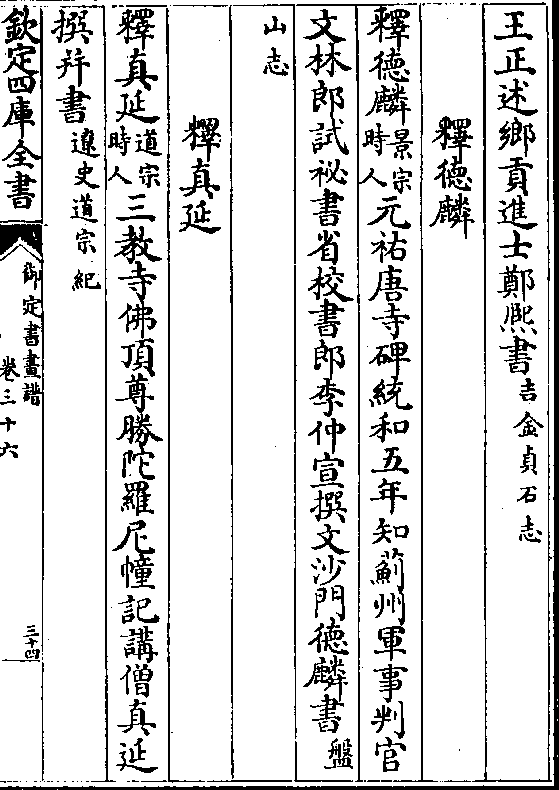 王正述鄉貢進士鄭熈書吉金貞石志
釋德麟
釋德麟景宗時人元祐唐寺碑統和五年知薊州軍事判官
文林郎試祕書省校書郎李仲宣撰文沙門德麟書盤
山志
釋真延
釋真延道宗時人三教寺佛頂尊勝陀羅尼幢記講僧真延
撰并書遼史道宗紀
欽定四庫全書
御定書畫譜
卷三十六
三十四